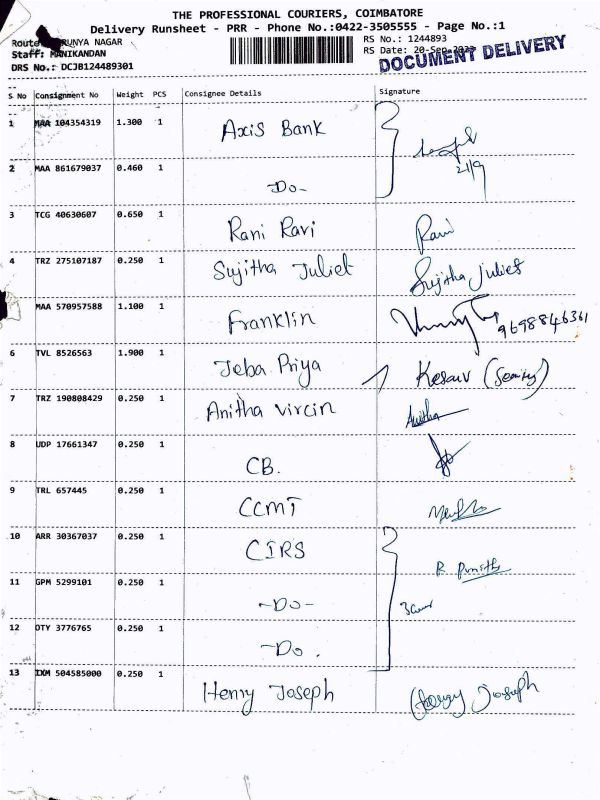 THE PROFESSIONAL COURIERS, COIMBATORE
Delivery Runsheet - PRR - Phone No.:0422-3505555 - Page No.:1
Route: RUNYA NAGAR RS No.: 1244893
Staff: MANIKANDAN RS Date: 20-Sep-2023
DRS No.: DCJB124489301 DOCUMENT DELIVERY
S No Consignment No Weight PCS Consignee Details Signature
1 MAA 104354319 1.300 1 Axis Bank
2 MAA 861679037 0.460 1 -Do- 21/9
3 TCG 40630607 0.650 1 Rani Ravi Rani
4 TRZ 275107187 0.250 1 Sujitha Juliet Sujitha Juliet
MAA 570957588 1.100 1 Franklin 9698846361
6 TVL 8526563 1.900 1 Jeba Priya Kesavv (Security)
7 TRZ 190808429 0.250 1 Anitha Vircin Anitha
8 UDP 17661347 0.250 1 CB.
9 TRL 657445 0.250 1 CCMT
10 ARR 30367037 0.250 1 CIRS
11 GPM 5299101 0.250 1 -Do- R. Punith
12 OTY 3776765 0.250 1 -Do.
13 IXM 504585000 0.250 1 Henry Joseph Henry Joseph